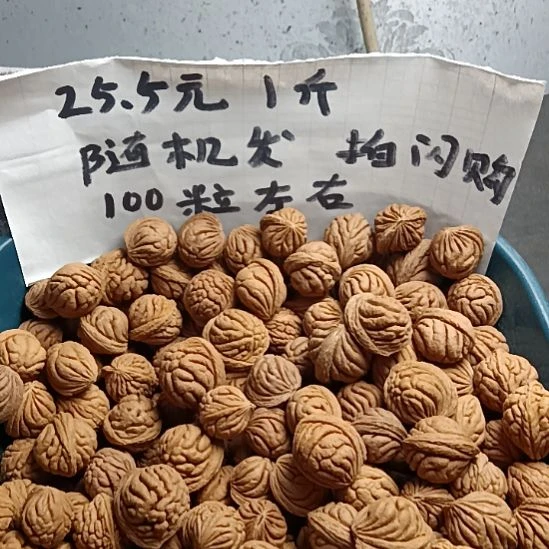 25.5元 1斤
随机发 拍闪购
100粒左右